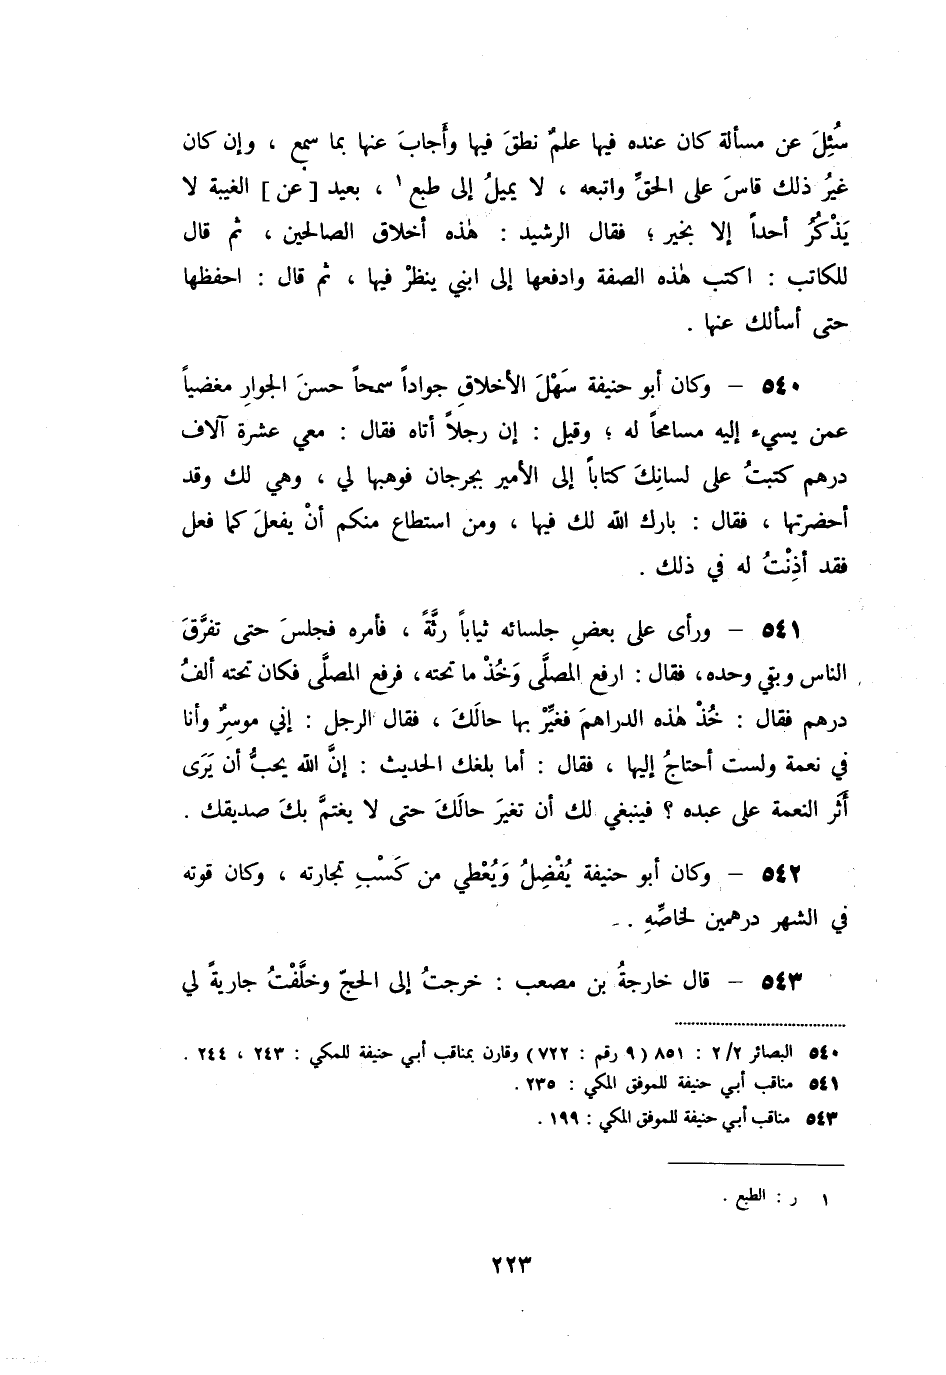 سُئِلَ عن مسألة كان عنده فيها علمٌ نطقَ فيها وأَجابَ عنها بما سمع ، وإن كان
غيرُ ذلك قاسَ على الحقِّ واتبعه ، لا يميلُ إلى طبع ١ ، بعيد [ عن ] الغيبة لا
يَذْكُرُ أحداً إلا بخير ؛ فقال الرشيد : هٰذه أخلاق الصالحين ، ثم قال
للكاتب : اكتب هٰذه الصفة وادفعها إلى ابني ينظرْ فيها ، ثم قال : احفظها
حتى أسألك عنها .
٥٤٠ – وكان أبو حنيفة سَهْلَ الأخلاقِ جواداً سمحاً حسنَ الجوارِ مغضياً
عمن يسيء إليه مسامحاً له ؛ وقيل : إن رجلاً أتاه فقال : معي عشرة آلاف
درهم كتبتُ على لسانِكَ كتاباً إلى الأمير بجرجان فوهبها لي ، وهي لك وقد
أحضرتها ، فقال : بارك الله لك فيها ، ومن استطاع منكم أنْ يفعلَ كما فعل
فقد أذِنْتُ له في ذلك .
٥٤١ – ورأى على بعضِ جلسائه ثياباً رثَّةً ، فأمره فجلسَ حتى تفرَّقَ
الناس وبقي وحده، فقال : ارفع المصلَّى وَخُذْ ما تحته، فرفع المصلَّى فكان تحته ألفُ
درهم فقال : خُذْ هٰذه الدراهمَ فغيِّرْ بها حالَكَ ، فقال الرجل : إني موسِرٌ وأنا
في نعمة ولست أحتاجُ إليها ، فقال : أما بلغك الحديث : إنَّ الله يحبُّ أن يَرَى
أَثَر النعمة على عبده ؟ فينبغي لك أن تغيرَ حالَكَ حتى لا يغتمَّ بكَ صديقك .
٥٤٢ – وكان أبو حنيفة يُفْضِلُ وَيُعْطي من كَسْبِ تجارته ، وكان قوته
في الشهر درهمين لخاصِّهِ .
٥٤٣ – قال خارجةُ بن مصعب : خرجتُ إلى الحجّ وخلَّفْتُ جاريةً لي
٥٤٠ البصائر ٢/٢ : ٨٥١ ( ٩ رقم : ٧٢٢ ) وقارن بمناقب أبي حنيفة للمكي : ٢٤٣ ، ٢٤٤ .
٥٤١ مناقب أبي حنيفة للموفق المكي : ٢٣٥ .
٥٤٣ مناقب أبي حنيفة للموفق المكي : ١٩٩ .
١ ر : الطبع .
٢٢٣